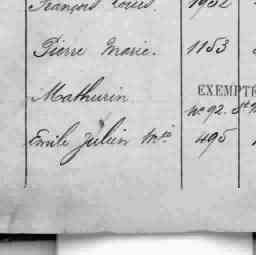 François Louis. 1952
Pierre Marie. 1153
Mathurin EXEMPTÉ
No 92. St
Emile Julien Mie 495